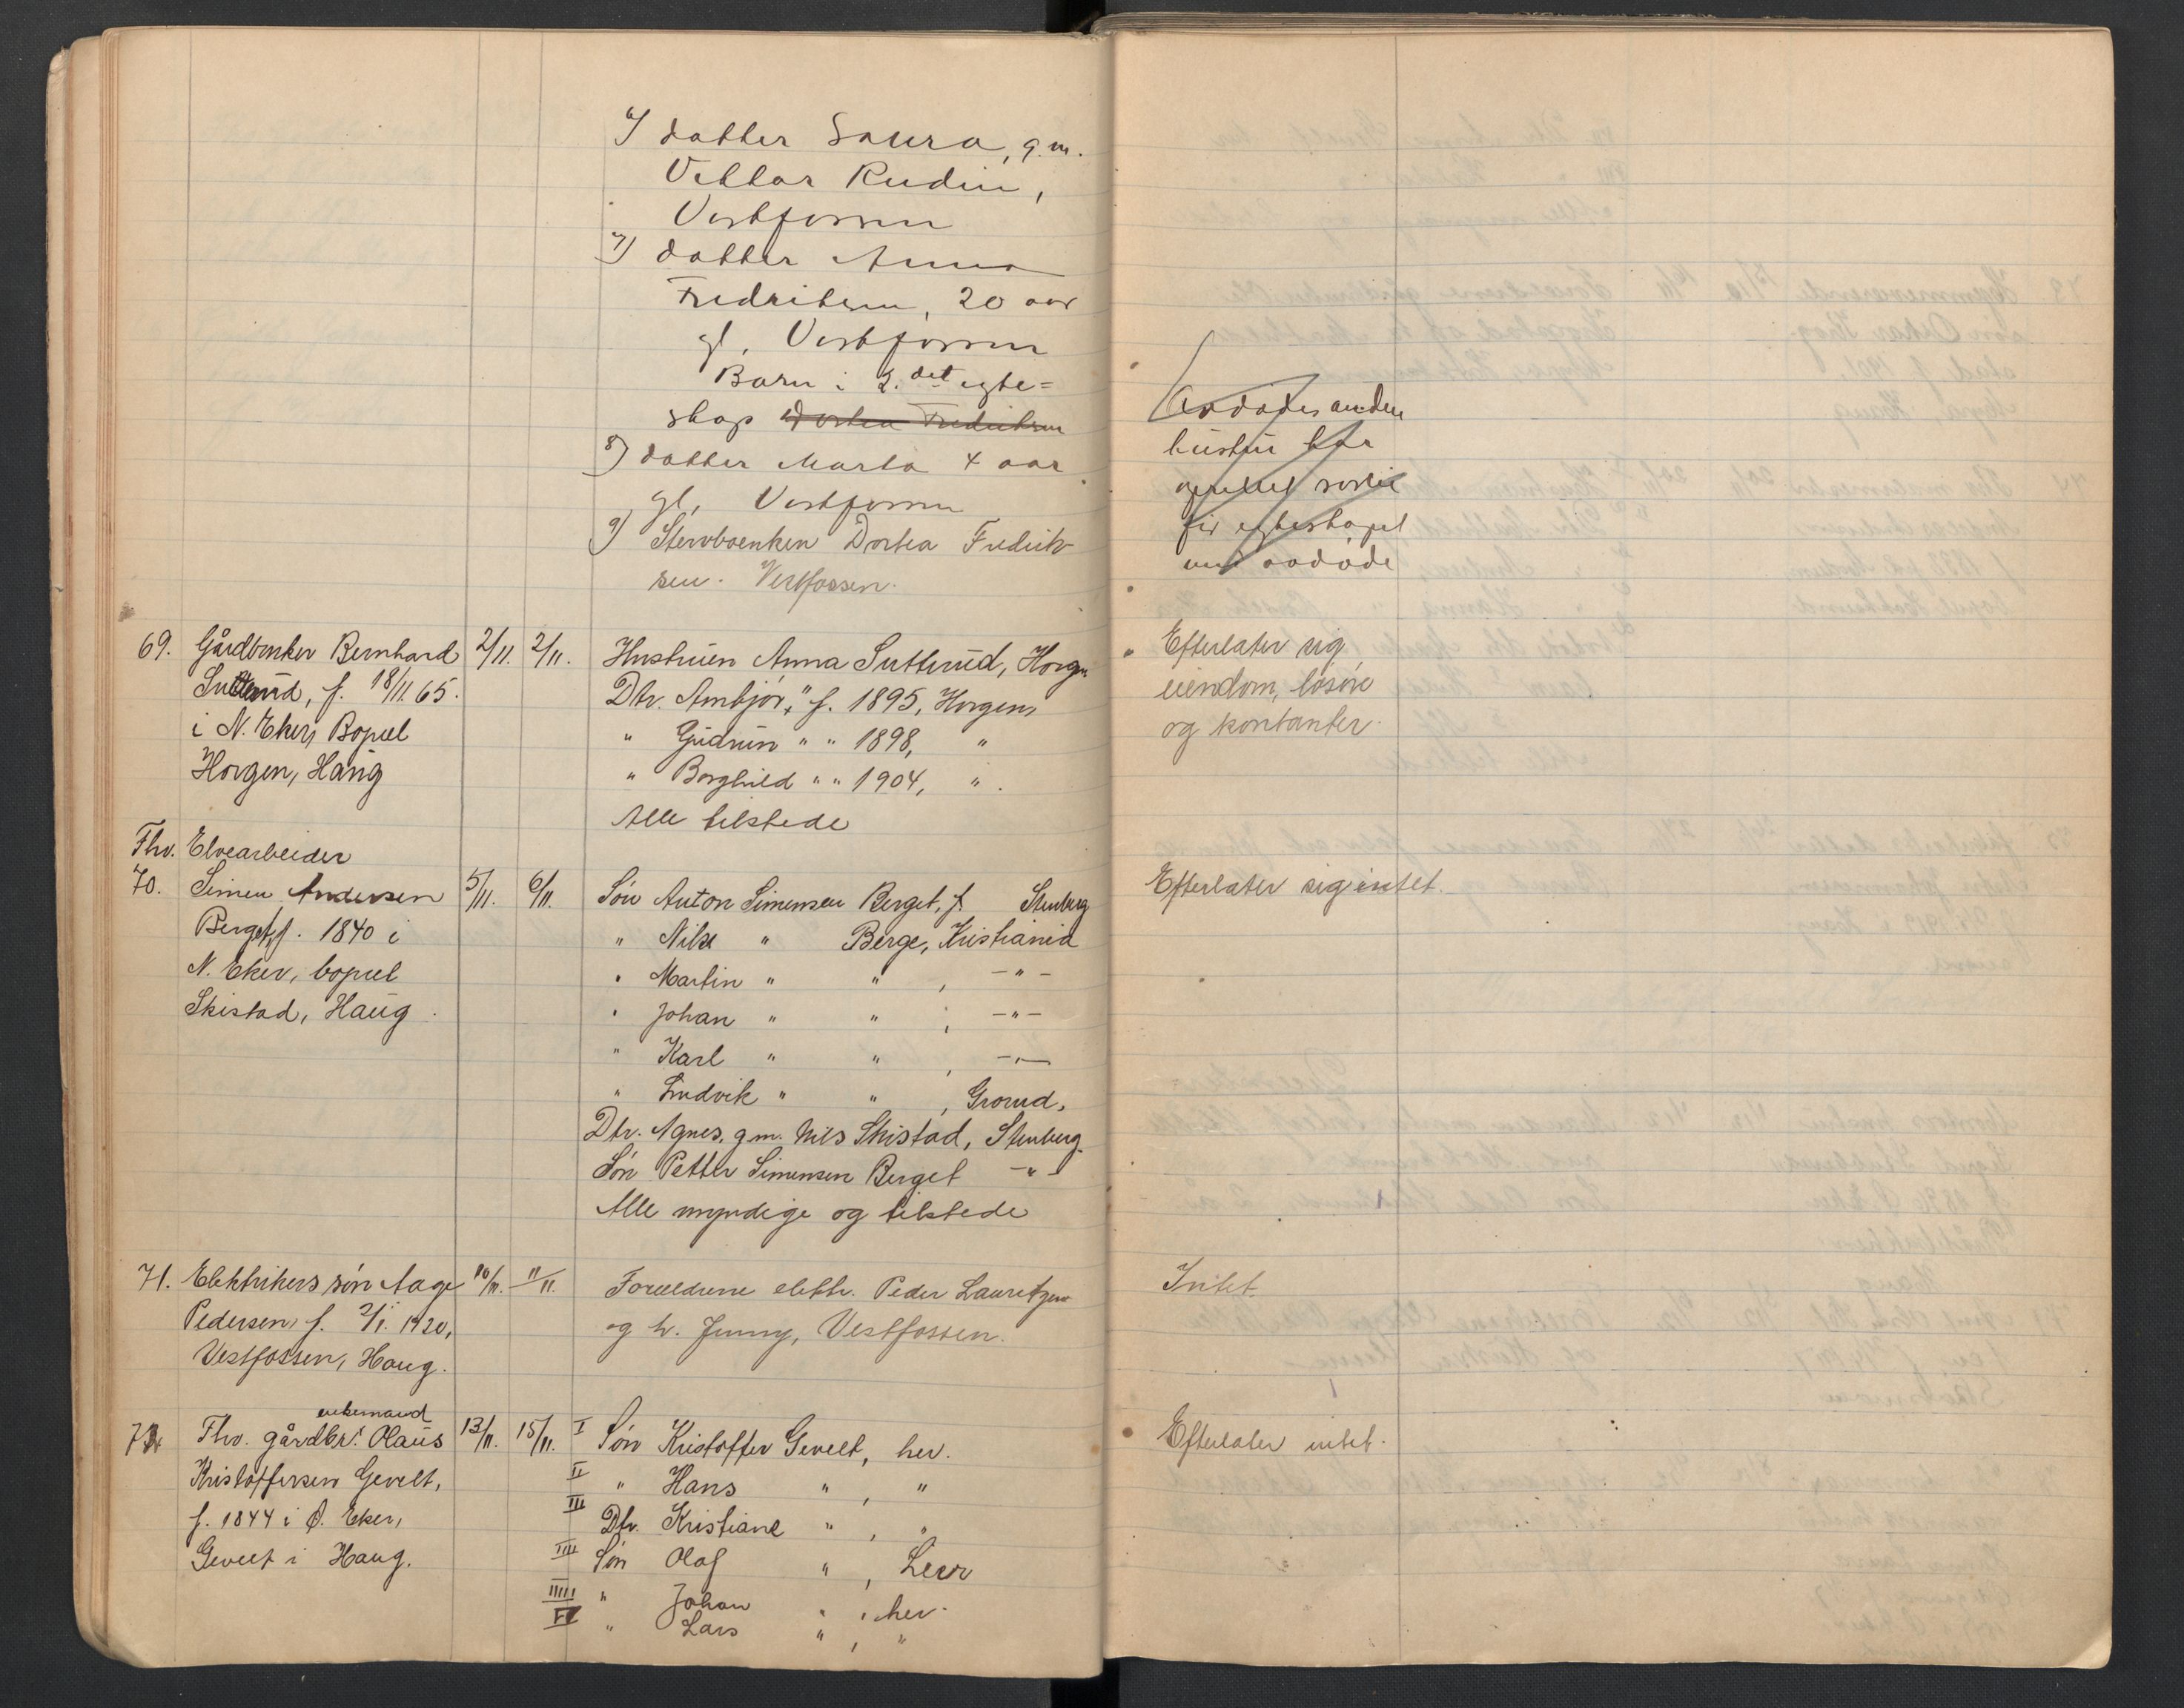 6) datter Laura, g.m.
Viktor Rudin,
Vestfossen
7) datter Anna
Fredriksen, 20 aar
gl, Vestfossen
Barn i 2.det egte=
skap Dortea Fredriksen
8) datter Marta 4 aar
gl, Vestfossen
9) Stervboenken Dortea Fredrik-
sen. Vestfossen.
Avdødes anden
hustru har
særeie
før egteskapet
med avdøde
69. Gårdbruker Bernhard 2/11. 2/11. Hustruen Anna Sutterud, Horgen
Sutterud, f. 18/11.65. Dtr. Ambjør, " f. 1895, Horgen,
i N. Eker, Bopæl " Gudrun " " 1898, "
Horgen, Haug " Borghild " " 1904, " .
Alle tilstede
Efterlater sig
eiendom, løsøre
og kontanter.
Fhv. Elvearbeider
70. Simen Andersen 5/11. 6/11. Søn Anton Simensen Berget, f. Stenberg
Berget, f. 1840 i " Nils " Berge, Kristiania
N. Eker, bopæl " Martin " " , -"-
Skistad, Haug. " Johan " " , -"-
" Karl " " , -"-
" Ludvik " " , Grorud,
Dtr. Agnes, g.m. Nils Skistad, Stenberg.
Søn Petter Simensen Berget -"-
Alle myndige og tilstede
Efterlater sig intet.
71. Elektrikers søn Aage 10/11. 11/11. Forældrene elektr. Peder Lauritzen
Pedersen, f. 2/1. 1920, og h. Jenny, Vestfossen.
Vestfossen, Haug.
Intet.
enkemand
72 Fhv. gårdbr. Olaus 13/11. 15/11. I Søn Kristoffer Gevelt, her.
Kristoffersen Gevelt, II " Hans " , "
f. 1844 i Ø. Eker, III Dtr. Kristiane " , "
Gevelt i Haug. IIII Søn Olaf " , Lier
IIIII " Johan " , her.
VI " Lars " , "
Efterlater intet.